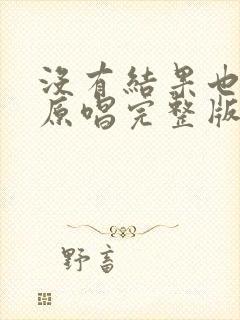 没有結果也
原唱完整版
野畜